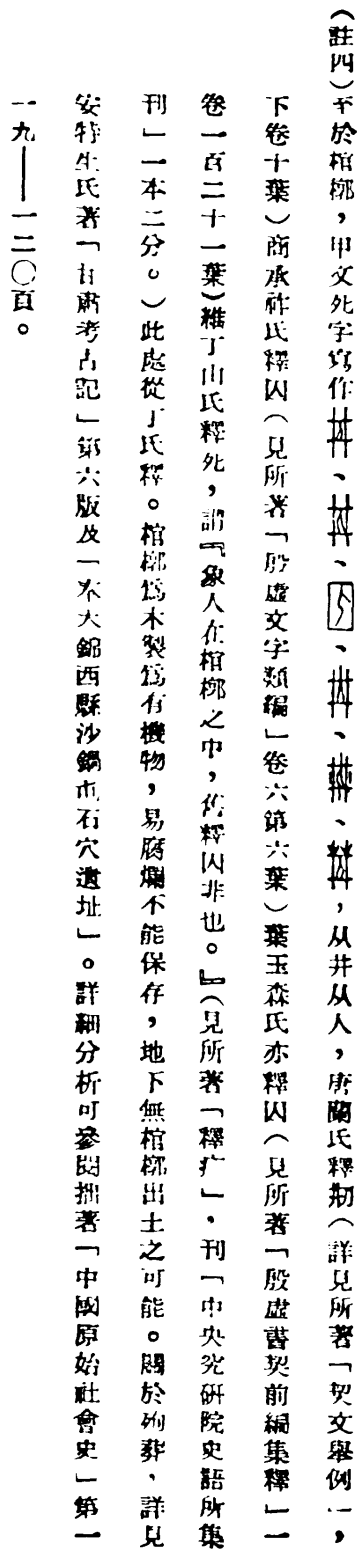 （註四）至於棺槨，甲文死字寫作、、、、、，从井从人，唐蘭氏釋㓝（詳見所著「契文舉例」，
下卷十葉）商承祚氏釋囚（見所著「殷虛文字類編」卷六第六葉）葉玉森氏亦釋囚（見所著「殷虛書契前編集釋」一
卷一百二十一葉）維丁山氏釋死，謂『象人在棺槨之中，舊釋囚非也。』（見所著「釋疒」，刊「中央究研院史語所集
刊」一本二分。）此處從丁氏釋。棺槨爲木製爲有機物，易腐爛不能保存，地下無棺槨出土之可能。關於殉葬，詳見
安特生氏著「甘肅考古記」第六版及「奉天錦西縣沙鍋屯石穴遺址」。詳細分析可參閱拙著「中國原始社會史」第一
一九——一二〇頁。